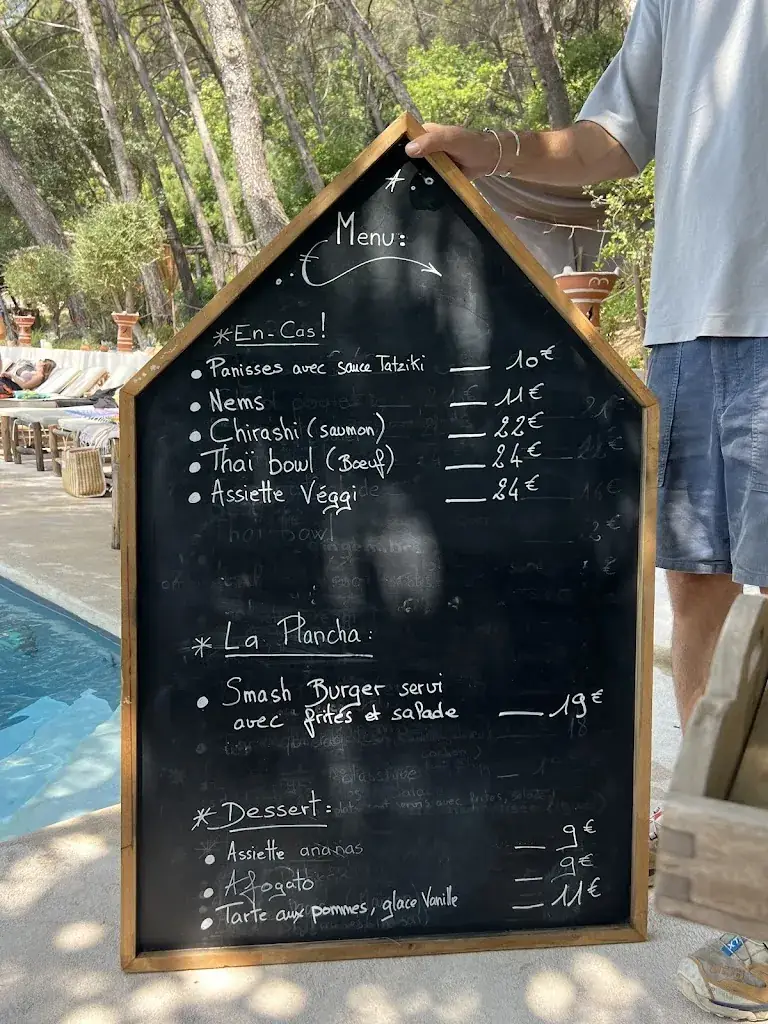 Menu:
*En-Cas!
• Panisses avec sauce Tatziki — 10€
• Nems — 11€
• Chirashi (saumon) — 22€
• Thaï bowl (Boeuf) — 24€
• Assiette Véggi — 24€
* La Plancha:
• Smash Burger servi
avec frites et salade — 19€
* Dessert:
• Assiette ananas — 9€
• Afogato — 9€
• Tarte aux pommes, glace Vanille — 11€